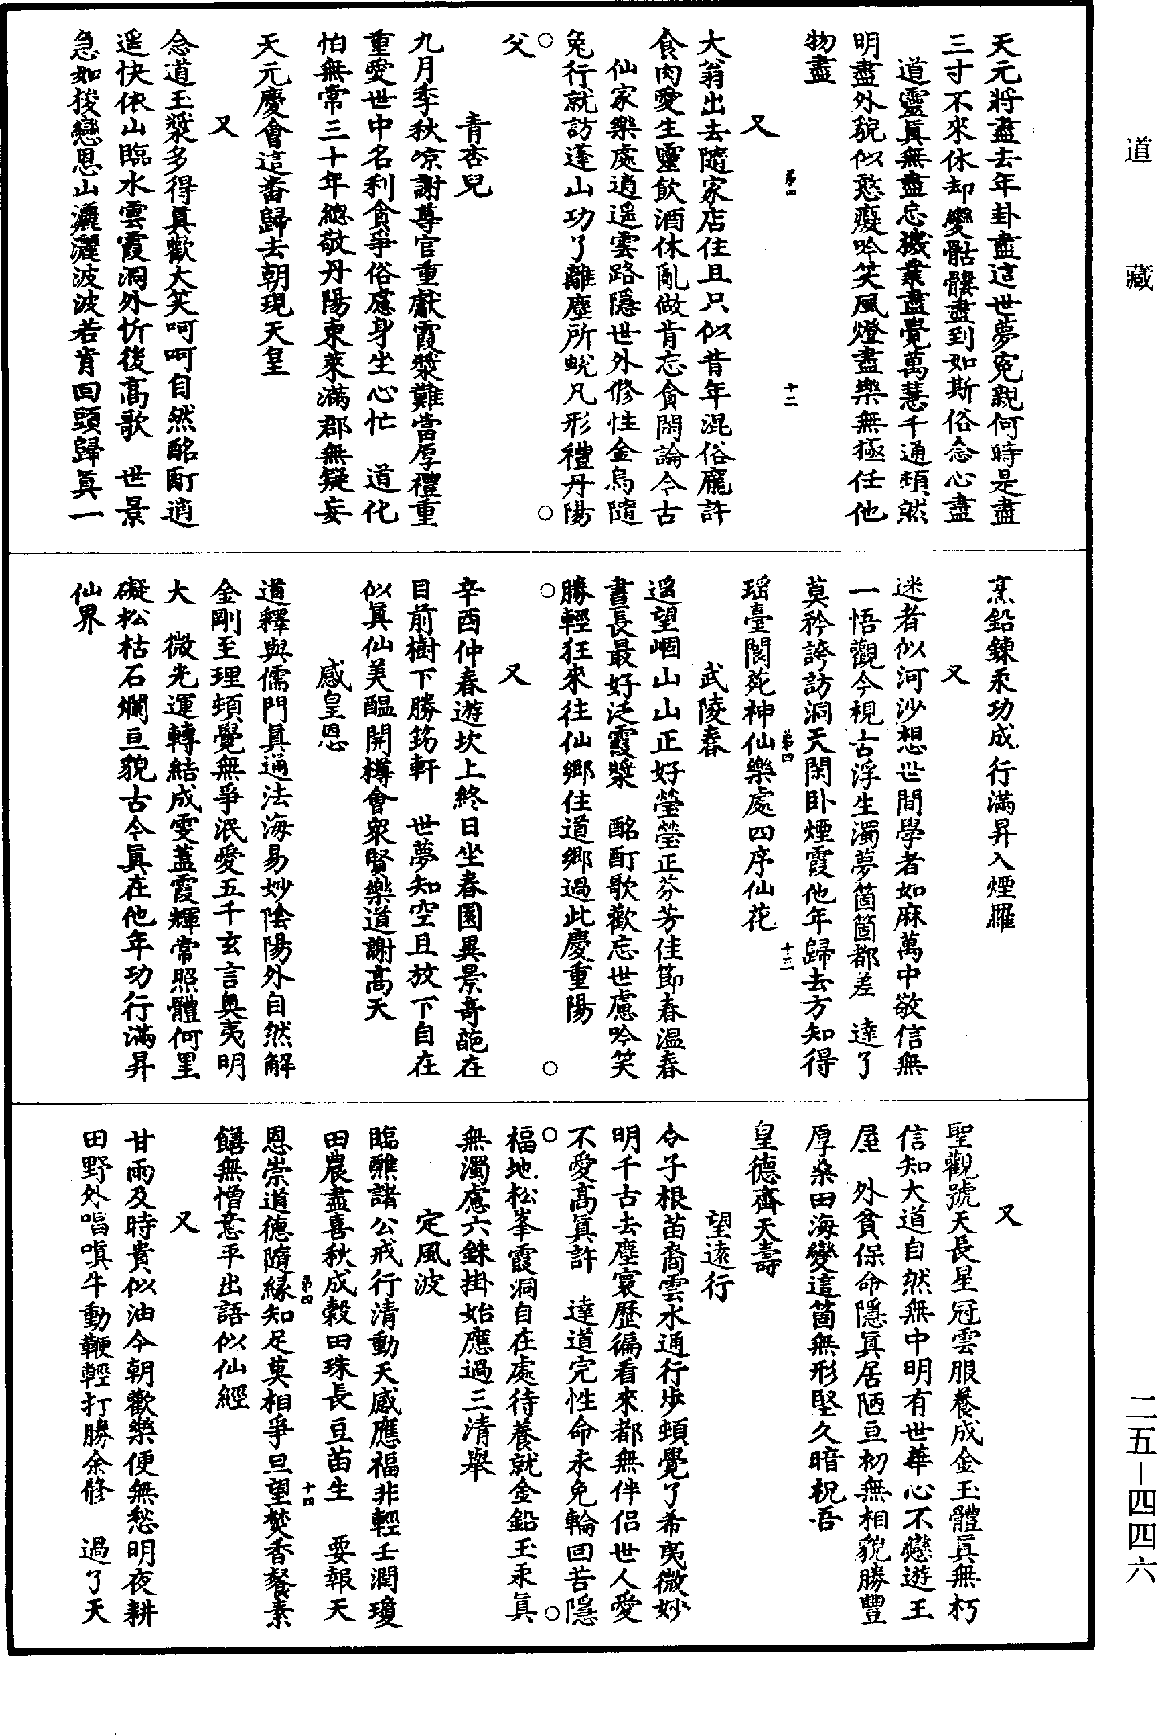 道藏
天元將盡去年卦盡這世夢冤親何時是盡
三寸不來休却變骷髏盡到如斯俗念心盡
道靈真無盡忘機業盡覺萬慧千通頹然
明盡外貌似憨癡吟笑風燈盡樂無極任他
物盡
第四
十二
又
大翁出去隨家店住且只似昔年混俗龐許
食肉愛生靈飲酒休亂做肯忘貪閑論今古
仙家樂處逍遥雲路隱世外修性金烏隨
兔行就訪蓬山功了離塵所蛻凡形禮丹陽
○ ○
父
青杏兒
九月季秋凉謝尊官重獻霞漿難當厚禮重
重愛世中名利貪爭俗慮身坐心忙 道化
怕無常三十年總敬丹陽東萊滿郡無疑妄
天元慶會這番歸去朝現天皇
又
念道玉漿多得真歡大笑呵呵自然酩酊逍
遥快依山臨水雲霞洞外忻後高歌 世景
急如梭戀恩山灑灑波波若肯回頭歸真一
烹鉛鍊汞功成行滿昇入煙羅
又
迷者似河沙想世間學者如麻萬中敬信無
一悟觀今視古浮生濁夢箇箇都差 達了
莫矜誇訪洞天閑卧煙霞他年歸去方知得
第四
十三
瑶臺閬苑神仙樂處四序仙花
武陵春
遥望崓山山正好瑩瑩正芬芳佳節春温春
晝長最好泛霞漿 酩酊歌歡忘世慮吟笑
勝輕狂來往仙鄉住道鄉過此慶重陽
○ ○
又
辛酉仲春遊坎上終日坐春園異景奇葩在
目前樹下勝筇軒 世夢知空且放下自在
似真仙美醞開樽會衆賢樂道謝高天
感皇恩
道釋與儒門真通法海易妙陰陽外自然解
金剛至理頓覺無爭泯愛五千玄言奥夷明
大 微光運轉結成雯蓋霞輝常照體何罣
礙松枯石爛亘貌古今真在他年功行滿昇
仙界
又
聖觀號天長星冠雲服養成金玉體真無朽
信知大道自然無中明有世華心不戀遊王
屋 外貧保命隱真居陋亘初無相貌勝豐
厚桑田海變這箇無形堅久暗祝吾
皇德齊天壽
望遠行
令子根苗裔雲水通行步頓覺了希夷微妙
明千古去塵寰歷徧看來都無伴侣世人愛
不愛高真許 達道完性命永免輪回苦隱
○ ○
福地松峯霞洞自在處待養就金鉛玉汞真
無濁慮六銖掛始應過三清舉
定風波
臨醮諸公戒行清動天感應福非輕壬潤瓊
田農盡喜秋成穀田珠長豆苗生 要報天
第四
十四
恩崇道德隨緣知足莫相爭旦望焚香餐素
饍無憎意平出語似仙經
又
甘雨及時貴似油今朝歡樂便無愁明夜耕
田野外唱嗔牛動鞭輕打勝余修 過了天
二五-四四六